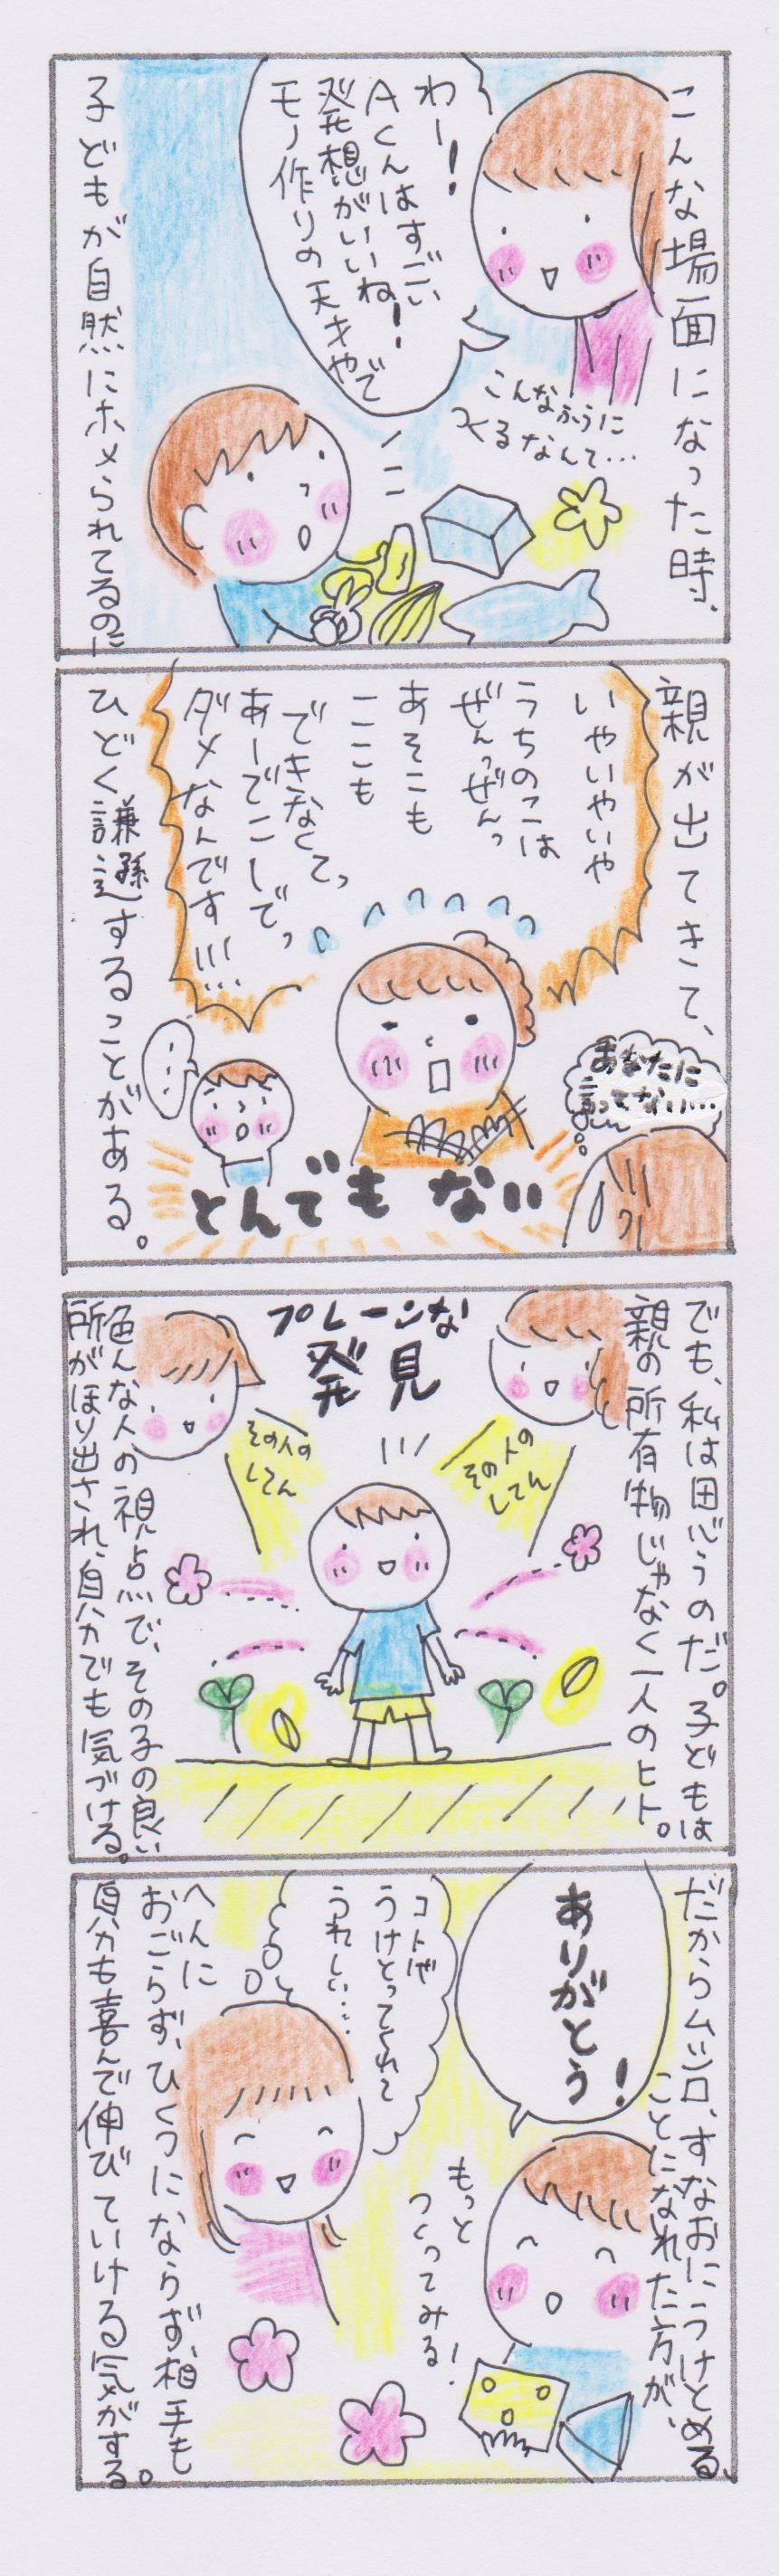 こんな場面になった時、
わー！
Aくんはすごい
発想がいいね！
モノ作りの天才やで
こんなふうに
つくるなんて…
子どもが自然にホメられてるのに
親が出てきて、
いやいやいや
うちのこは
ぜんっぜんっ
あそこも
ここも
できなくて、
あーでこーでっ
ダメなんです!!!…
あなたに
言ってない…
とんでもない
ひどく謙遜することがある。
でも、私は思うのだ。子どもは
親の所有物じゃなく一人のヒト。
プレーンな
発見
その人の
してん
その人の
してん
色んな人の視点で、その子の良い
所がほり出され、自分でも気づける。
だからムシロ、すなおにうけとめる、
ことになれた方が、
ありがとう！
コトバ
うけとってくれて
うれしい…
もっと
つくってみる！
へんに
おごらず、ひくつにならず、相手も
自分も喜んで伸びていける気がする。